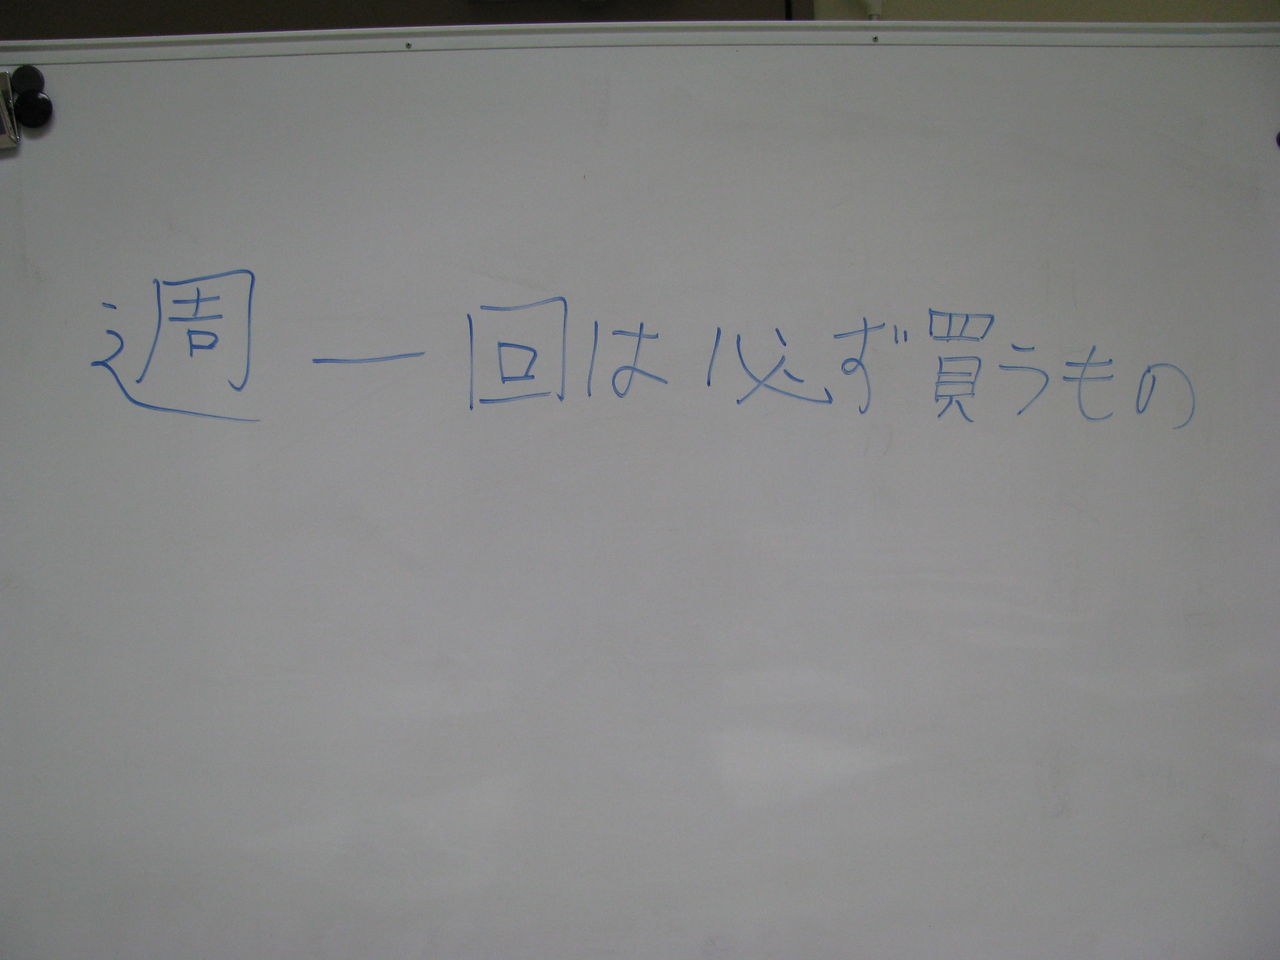 週一回は必ず買うもの